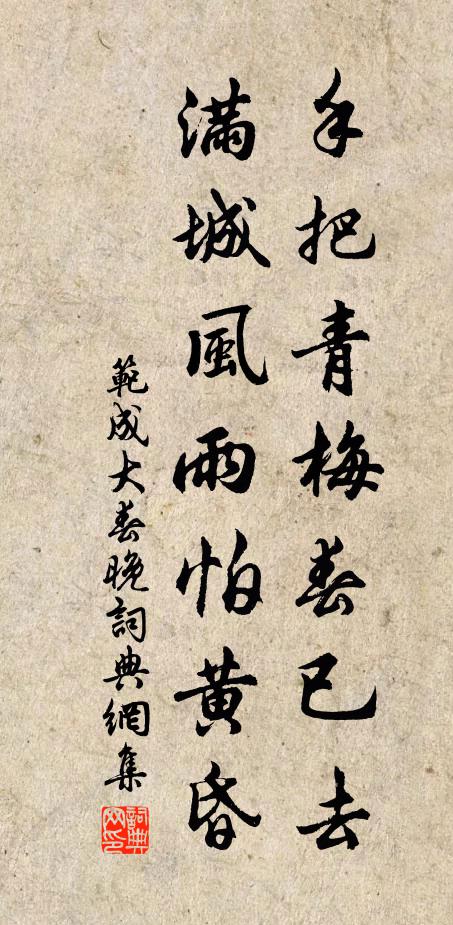 手把青梅春已去
滿城風雨怕黃昏
範成大春晚詞典網集
詞典網印